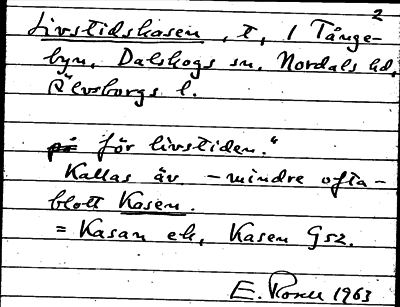 2
Livstidskasen, t, 1 Tånge-
byn, Dalskogs sn, Nordals hd,
Älvsborgs l.
på för livstiden."
Kallas äv. - mindre ofta -
blott Kasen.
= Kasan ek, Kasen Gsz.
E. Rosell 1963